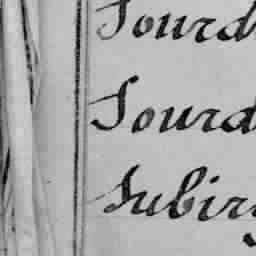 Sourd
Sourd
Subir